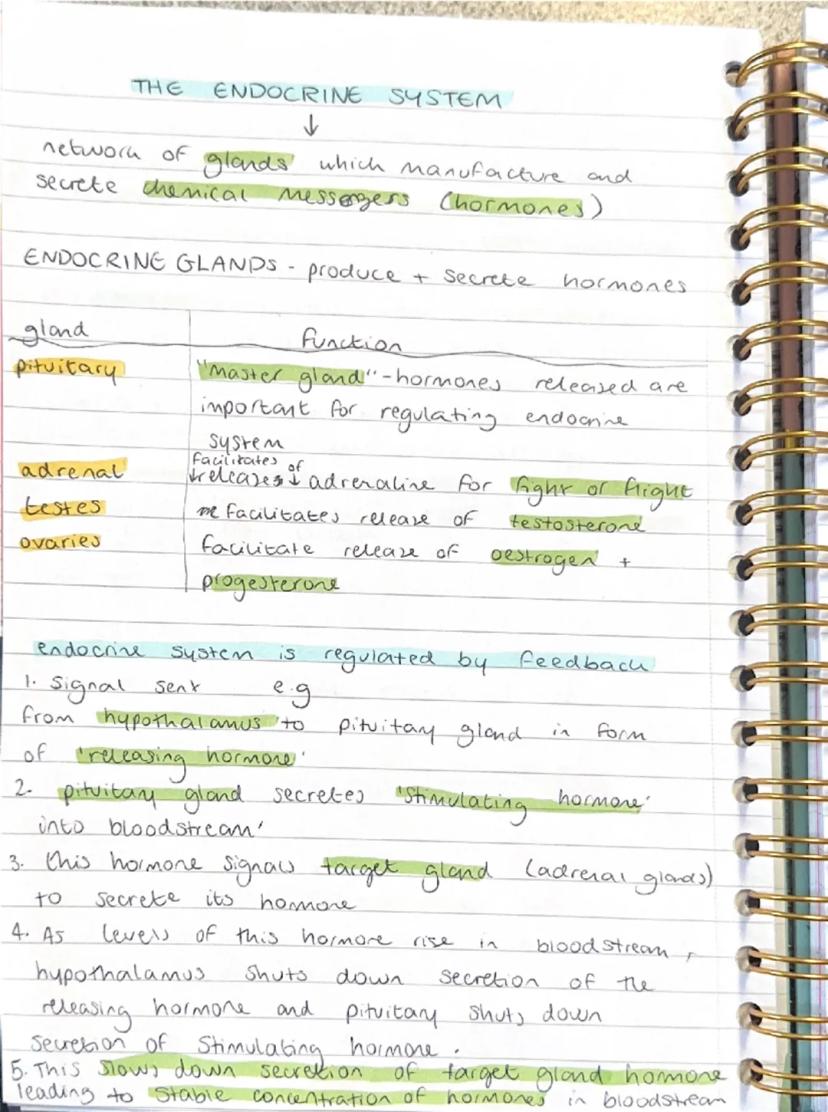 THE ENDOCRINE SYSTEM
↓
network of glands which manufacture and
secrete chemical messengers (hormones)
ENDOCRINE GLANDS - produce + secrete hormones
gland function
pituitary "master gland" - hormones released are
important for regulating endocrine
system
adrenal facilitates releases of adrenaline for fight or flight
testes facilitates release of testosterone
ovaries facilitate release of oestrogen +
progesterone
endocrine system is regulated by feedback
1. signal sent e.g
from hypothalamus to pituitary gland in form
of 'releasing hormone'
2. pituitary gland secretes 'stimulating hormone'
into bloodstream'
3. this hormone signals target gland (adrenal glands)
to secrete its hormone
4. As levels of this hormone rise in bloodstream,
hypothalamus shuts down secretion of the
releasing hormone and pituitary shuts down
secretion of stimulating hormone.
5. This slows down secretion of target gland hormone
leading to stable concentration of hormones in bloodstream